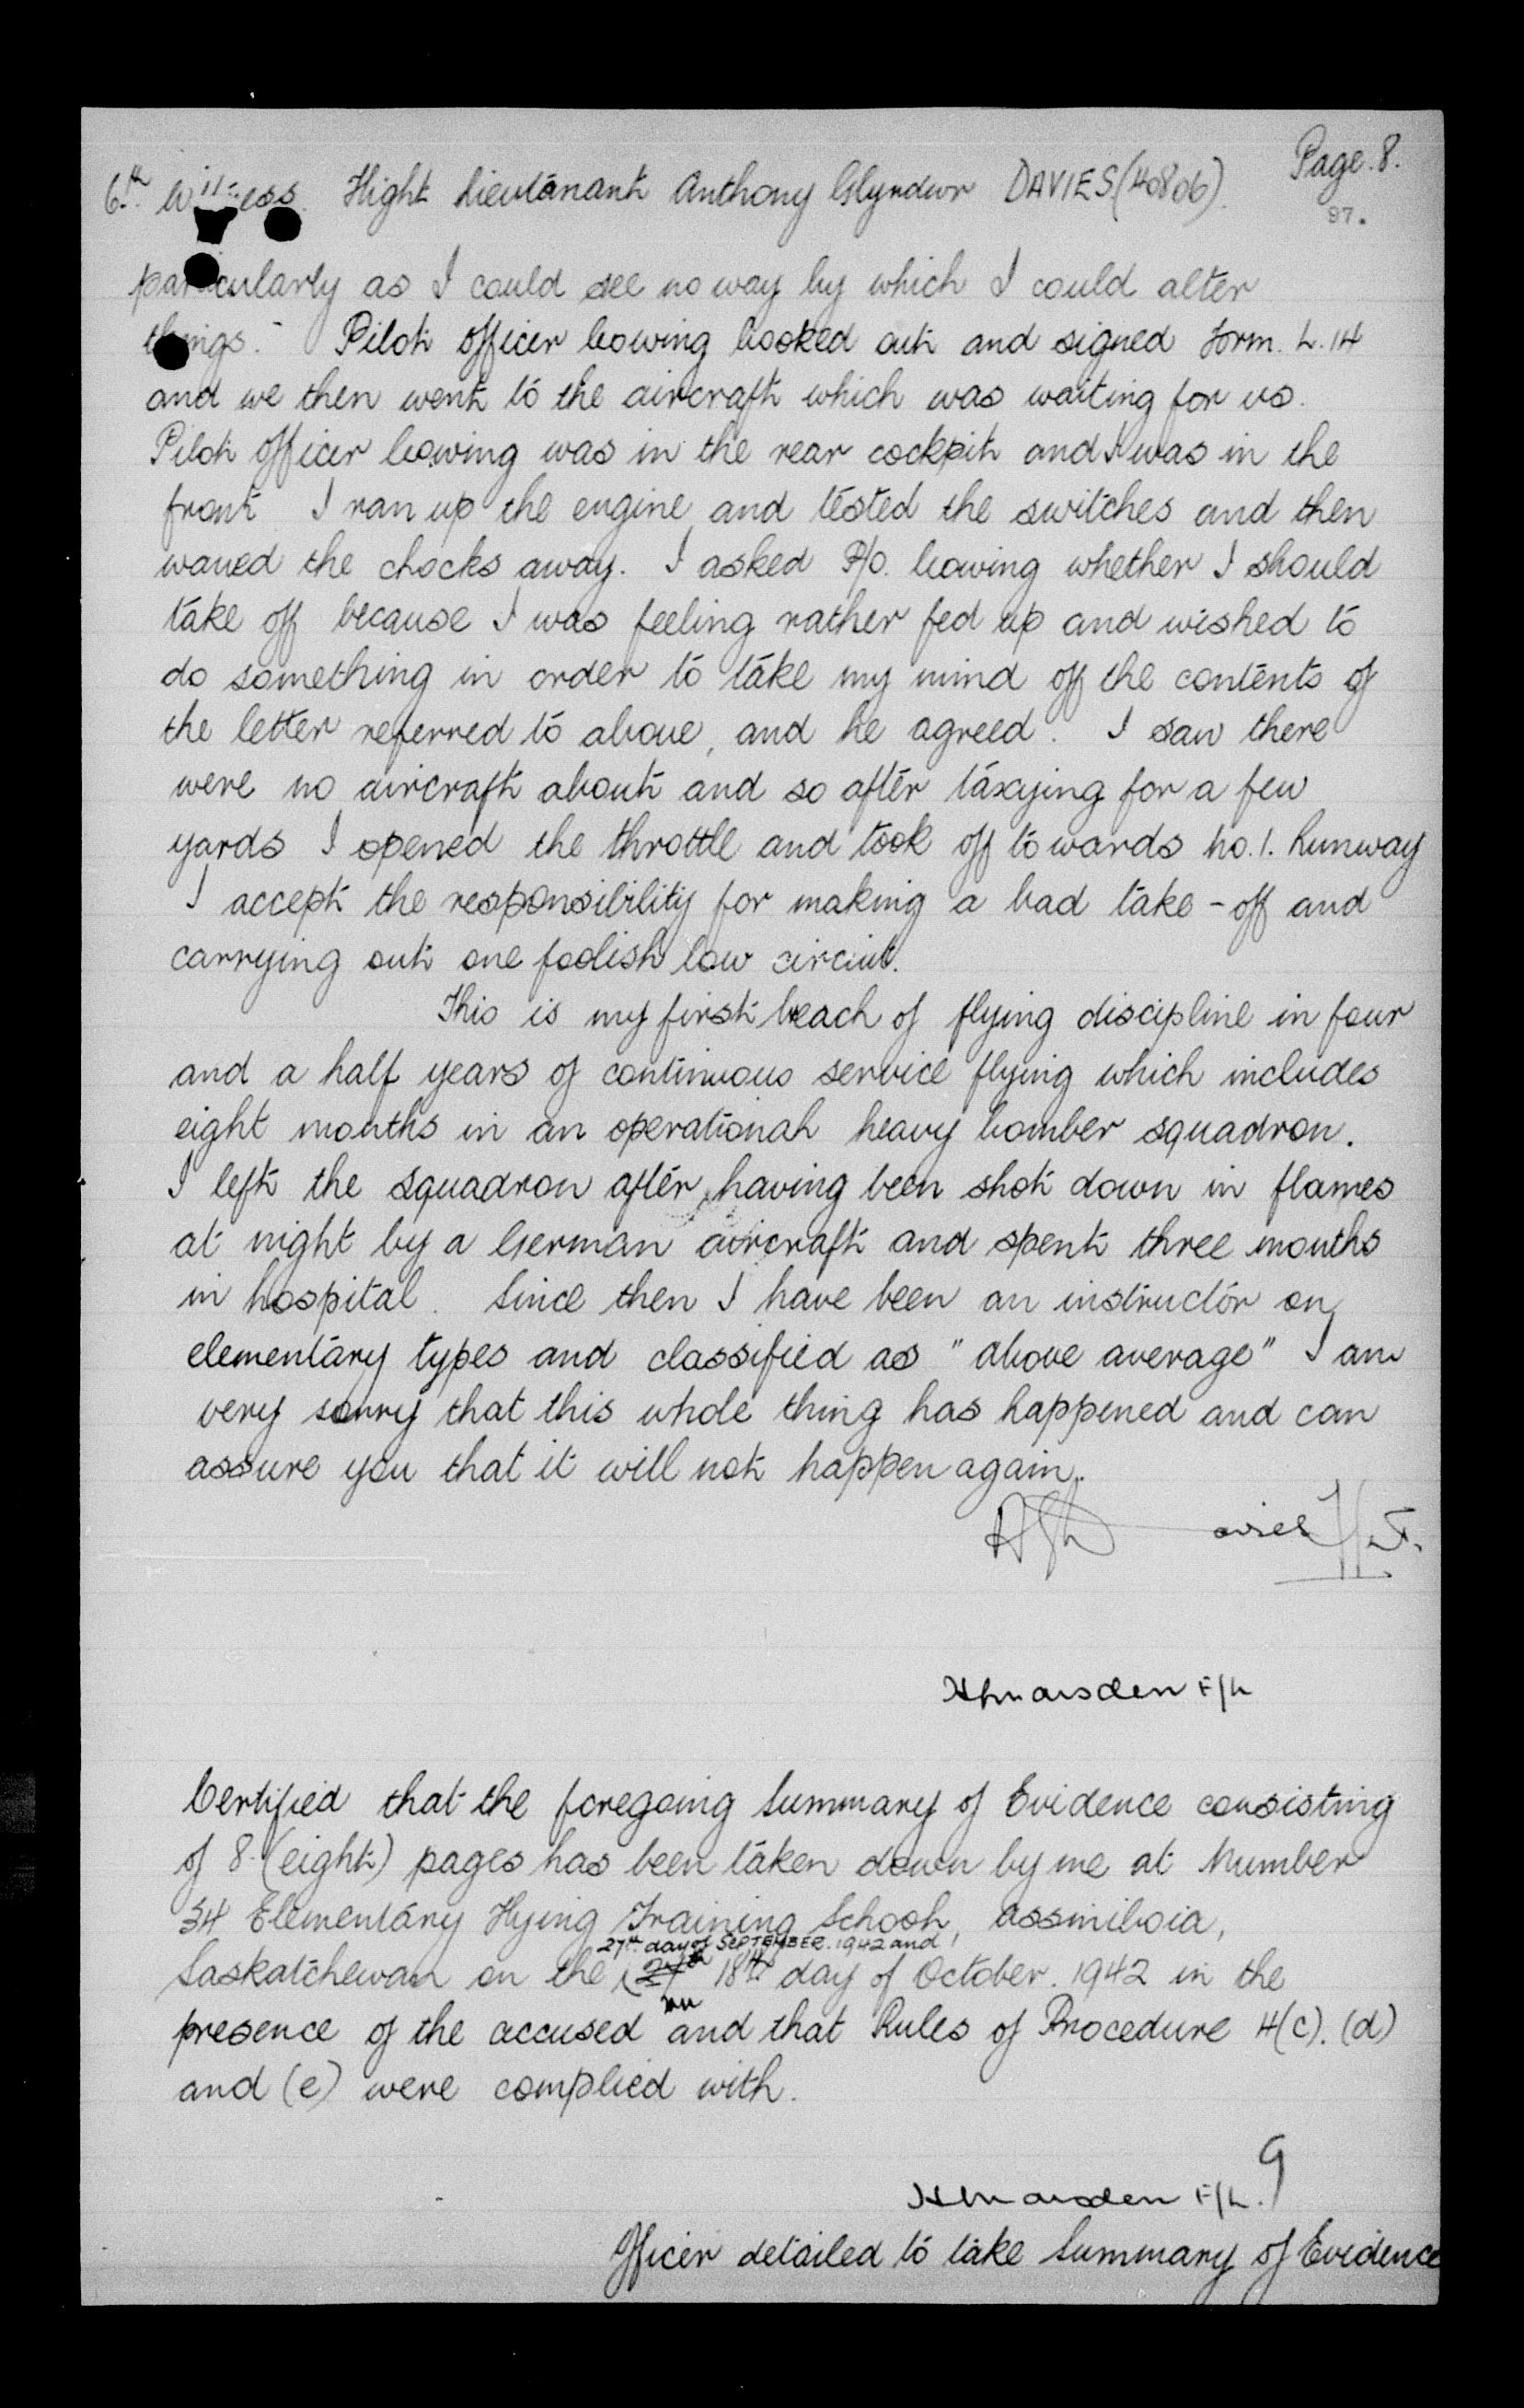 Page. 8.
6th. Witness. Flight Lieutenant Anthony Glyndwr DAVIES (40806).
97.
particularly as I could see no way by which I could alter
things. Pilot Officer Cowing booked out and signed Form. L.14
and we then went to the aircraft which was waiting for us.
Pilot Officer Cowing was in the rear cockpit and I was in the
front I ran up the engine and tested the switches and then
waved the chocks away. I asked P/O. Cowing whether I should
take off because I was feeling rather fed up and wished to
do something in order to take my mind off the contents of
the letter referred to above, and he agreed. I saw there
were no aircraft about and so after taxying for a few
yards I opened the throttle and took off towards No. 1. Runway
I accept the responsibility for making a bad take-off and
carrying out one foolish low circuit.
This is my first breach of flying discipline in four
and a half years of continuous service flying which includes
eight months in an operational heavy bomber squadron.
I left the squadron after having been shot down in flames
at night by a German aircraft and spent three months
in hospital. Since then I have been an instructor on
elementary types and classified as "above average" I am
very sorry that this whole thing has happened and can
assure you that it will not happen again.
AGDavies F/Lt.
Marsden F/L
Certified that the foregoing Summary of Evidence consisting
of 8 (eight) pages has been taken down by me at Number
34 Elementary Flying Training School, Assiniboia,
27th. day of SEPTEMBER. 1942 and
Saskatchewan on the 18th day of October. 1942 in the
presence of the accused and that Rules of Procedure 4(c). (d)
and (e) were complied with.
Marsden F/L.
Officer detailed to take Summary of Evidence